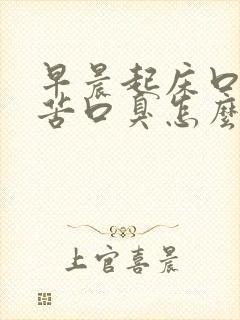 早晨起床口
苦口臭怎麼
上官喜晨